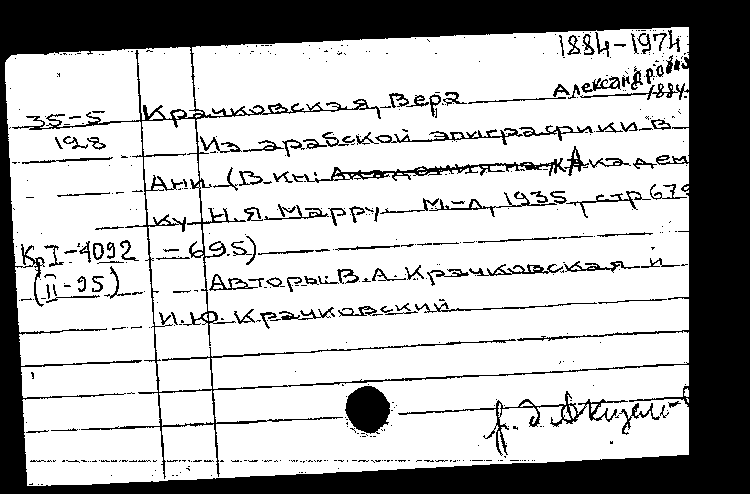 1884-1974
Александровна
35-5 Крачковская, Вера 1884-
128 Из арабской эпиграфики в
Ани (В кн: Академия на Академ
ку Н.Я. Марру. М.-Л, 1935, стр 679
Кр I-4092 - 695)
(II-95) Авторы: В.А. Крачковская и
И.Ю. Крачковский